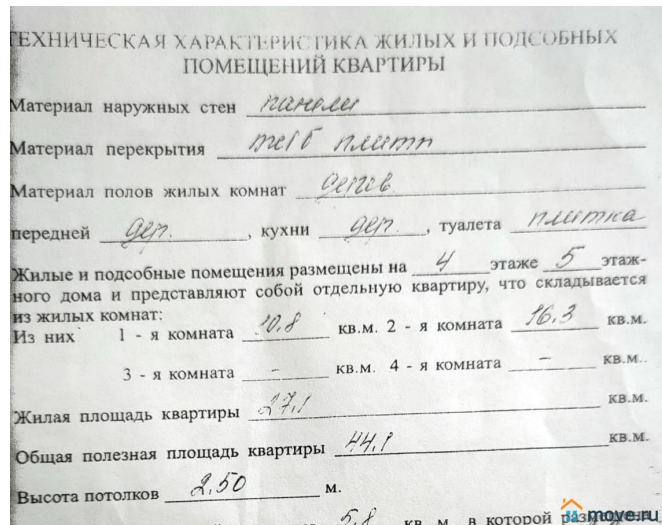 ТЕХНИЧЕСКАЯ ХАРАКТЕРИСТИКА ЖИЛЫХ И ПОДСОБНЫХ
ПОМЕЩЕНИЙ КВАРТИРЫ
Материал наружных стен панели
Материал перекрытия ж/б плитп
Материал полов жилых комнат дерев.
передней дер. , кухни дер. , туалета плитка
Жилые и подсобные помещения размещены на 4 этаже 5 этаж-
ного дома и представляют собой отдельную квартиру, что складывается
из жилых комнат:
Из них 1 - я комната 10.8 кв.м. 2 - я комната 16.3 кв.м.
3 - я комната - кв.м. 4 - я комната - кв.м..
Жилая площадь квартиры 27,1 кв.м.
Общая полезная площадь квартиры 44,1 кв.м.
Высота потолков 2,50 м.
5,8 кв. м. в которой размещена
move.ru